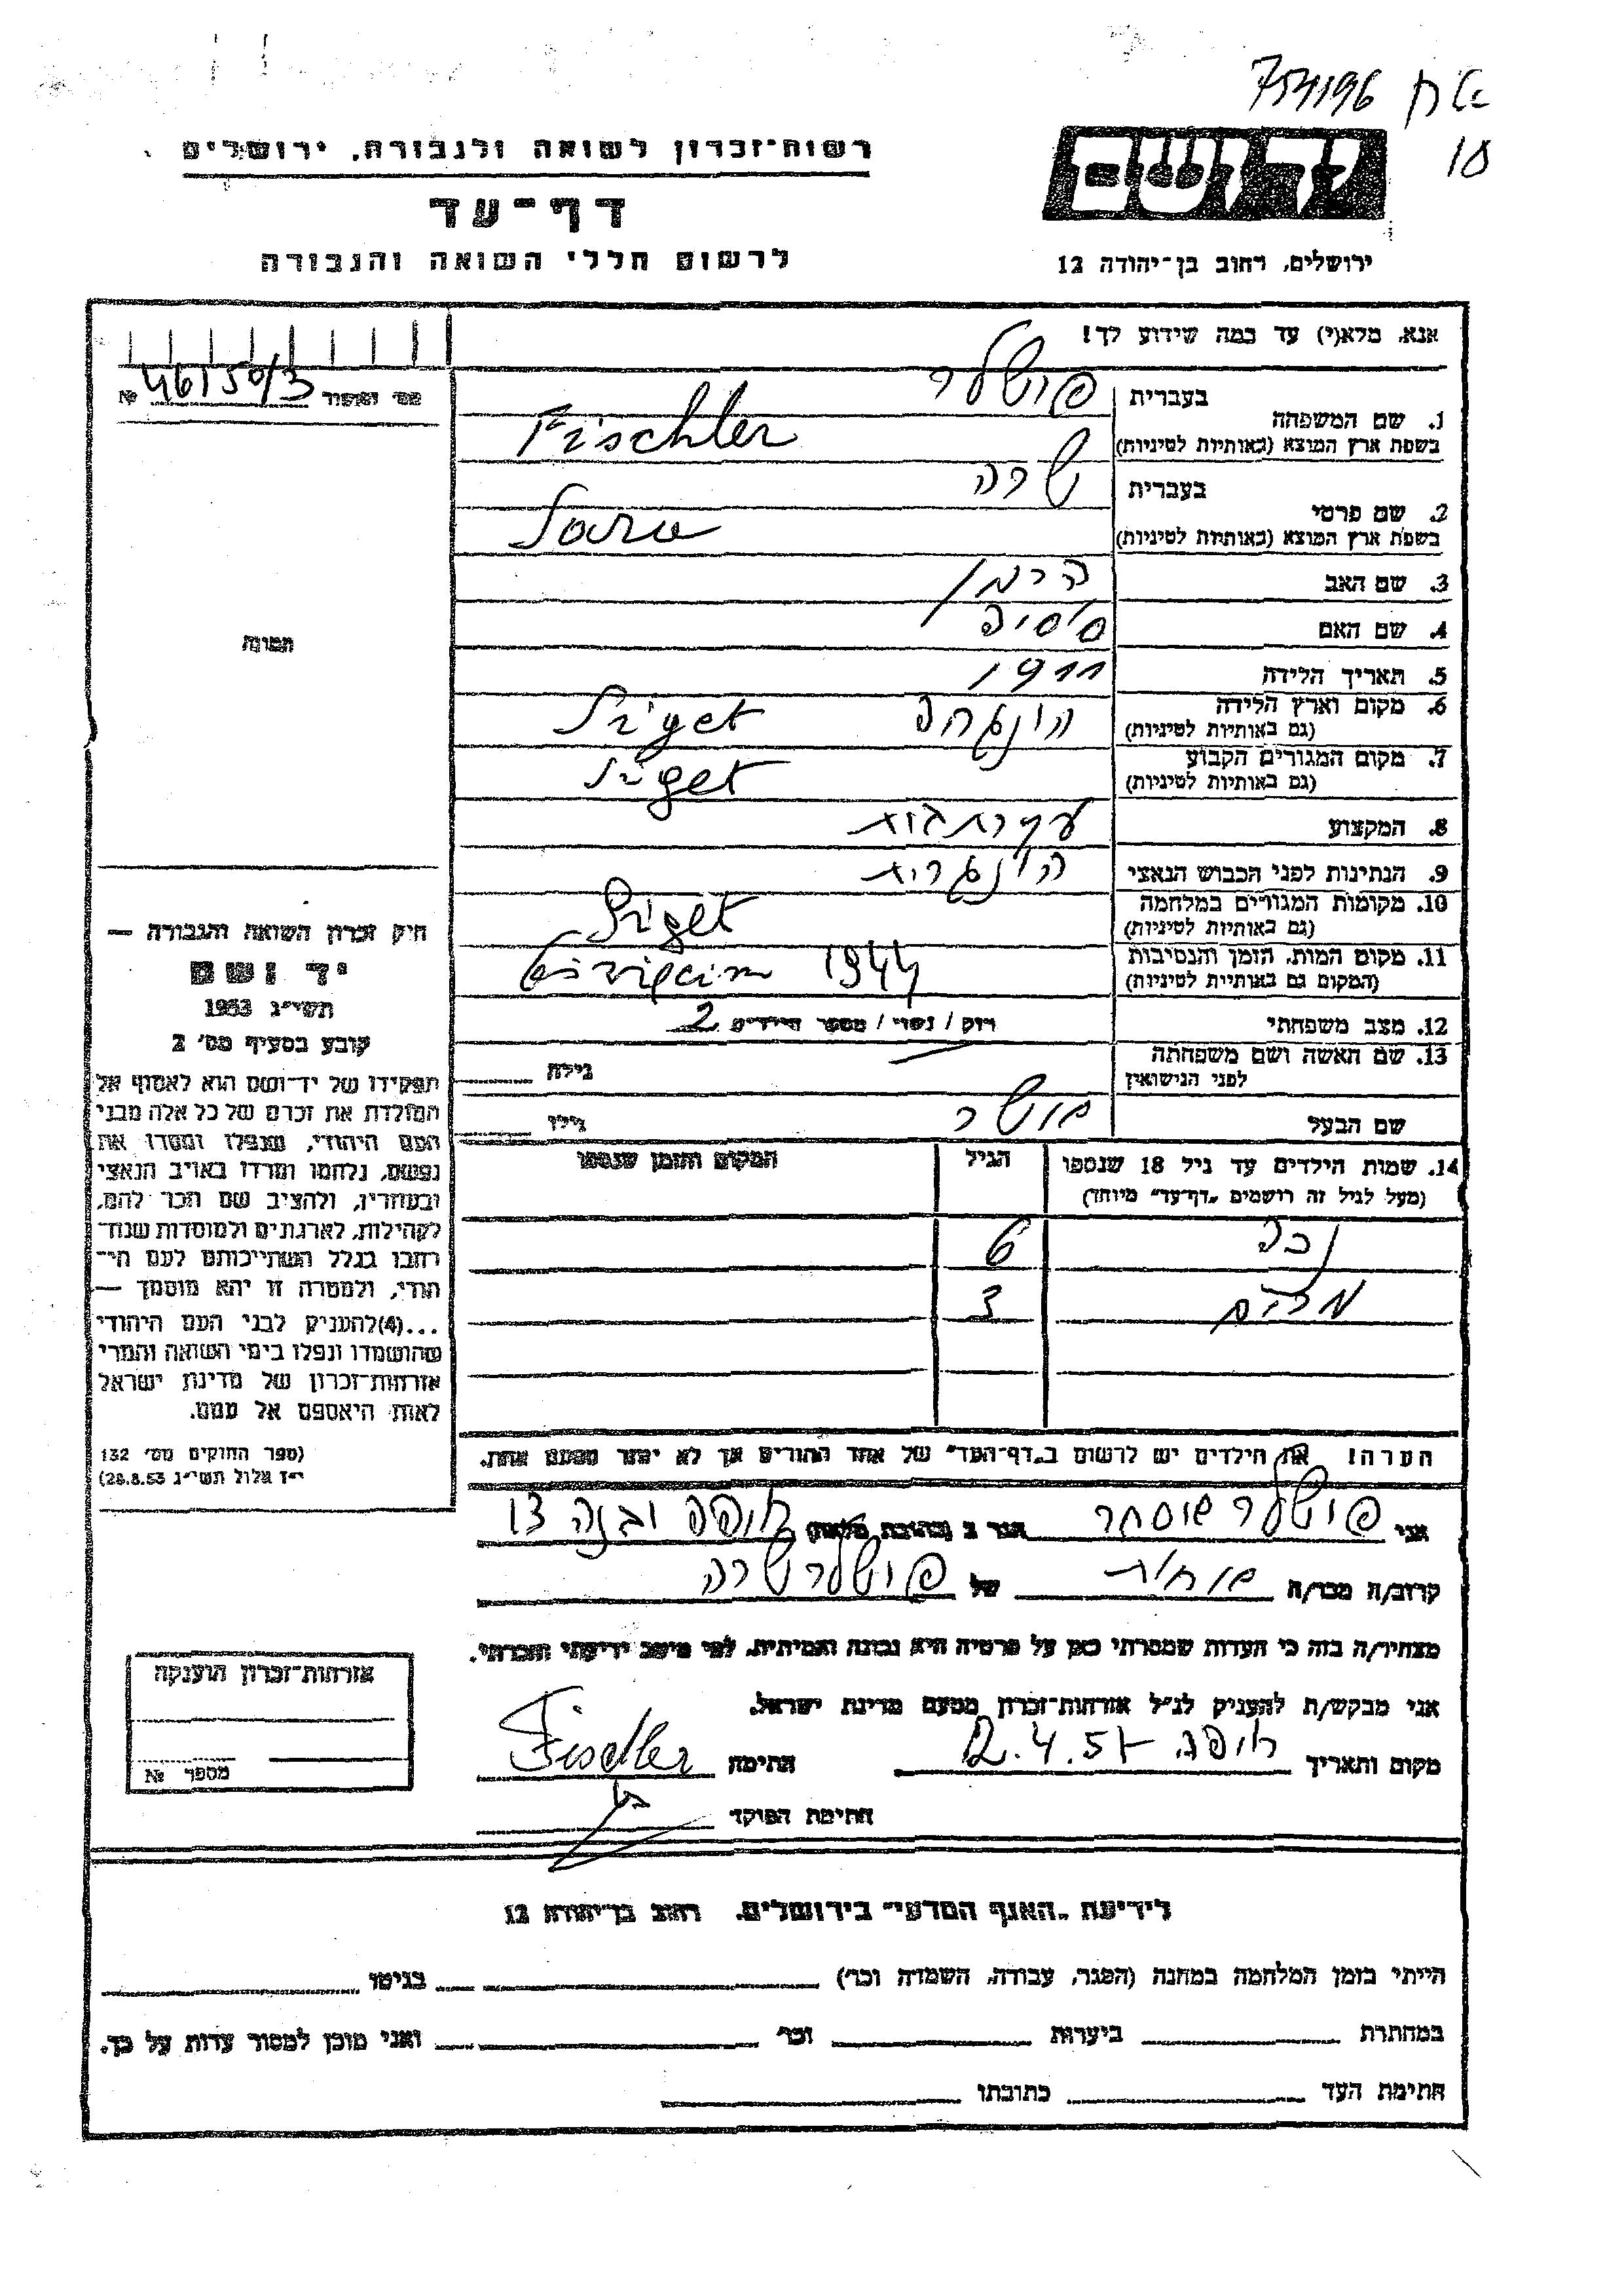 754196
10
רשות-זכרון לשואה ולגבורה, ירושלים
דף-עד
לרשום חללי השואה והגבורה
יד ושם
ירושלים, רחוב בן-יהודה 12
אנא, מלא(י) עד כמה שידוע לך!
46150/3 №
1. שם המשפחה
בעברית פישלר
בשפת ארץ המוצא (באותיות לטיניות) Fischler
2. שם פרטי
בעברית שרה
בשפת ארץ המוצא (באותיות לטיניות) Sara
3. שם האב הרמן
4. שם האם
5. תאריך הלידה 1911
6. מקום וארץ הלידה
(גם באותיות לטיניות) Sziget
7. מקום המגורים הקבוע
(גם באותיות לטיניות) Sziget
8. המקצוע עקרת בית
9. הנתינות לפני הכבוש הנאצי הונגרית
10. מקומות המגורים במלחמה
(גם באותיות לטיניות) Sziget
11. מקום המות, הזמן והנסיבות
(המקום גם באותיות לטיניות) 1944
12. מצב משפחתי רוק / נשוי / מספר הילדים 2
13. שם האשה ושם משפחתה
לפני הנישואין
גילה
שם הבעל
גילו
14. שמות הילדים עד גיל 18 שנספו
(מעל לגיל זה רושמים "דף-עד" מיוחד)
הגיל
המקום והזמן שנספו
6
מרים 3
הערה! את הילדים יש לרשום ב"דף-העד" של אחד ההורים אך לא יותר מפעם אחת.
תמונה
חוק זכרון השואה והגבורה —
יד ושם
תשי"ג 1953
קובע בסעיף מס' 2
תפקידו של יד-ושם הוא לאסוף אל
המולדת את זכרם של כל אלה מבני
העם היהודי, שנפלו ומסרו את
נפשם, נלחמו ומרדו באויב הנאצי
ובעוזריו, ולהציב שם וזכר להם,
לקהילות, לארגונים ולמוסדות שנח-
רבו בגלל השתייכותם לעם היה-
ודי, ולמטרה זו יהא מוסמך —
...(4)להעניק לבני העם היהודי
שהושמדו ונפלו בימי השואה והמרי
אזרחות-זכרון של מדינת ישראל
לאות היאספם אל עמם.
(ספר החוקים מס' 132
י"ז אלול תשי"ג 28.8.53)
אני פישלר אסתר הגר ב (כתובת מלאה) חיפה
קרוב/ה מכר/ה של פישלר שרה
מצהיר/ה בזה כי העדות שמסרתי כאן על פרטיה היא נכונה ואמיתית, לפי מיטב ידיעתי והכרתי.
אני מבקש/ת להעניק לנ"ל אזרחות-זכרון מטעם מדינת ישראל.
מקום ותאריך חיפה 12.4.57 חתימה Fischler
חתימת הפוקד
אזרחות-זכרון הוענקה
מספר №
לידיעת "האגף המדעי" בירושלים, רחוב בן-יהודה 12
הייתי בזמן המלחמה במחנה (הסגר, עבודה, השמדה וכו') בגיטו
במחתרת ביערות וכו' ואני מוכן למסור עדות על כך.
חתימת העד כתובתו